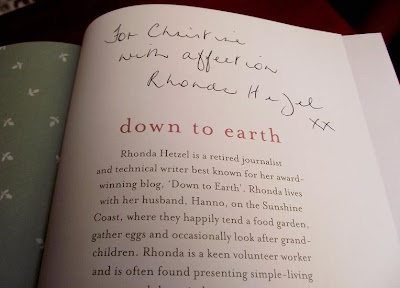 For Christine
with affection
Rhonda Hetzel
xx
down to earth
Rhonda Hetzel is a retired journalist
and technical writer best known for her award-
winning blog, 'Down to Earth'. Rhonda lives
with her husband, Hanno, on the Sunshine
Coast, where they happily tend a food garden,
gather eggs and occasionally look after grand-
children. Rhonda is a keen volunteer worker
and is often found presenting simple-living